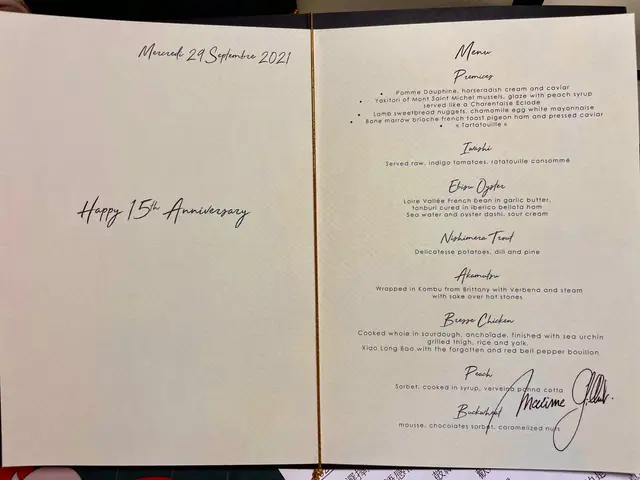 Mercredi 29 Septembre 2021
Happy 15th Anniversary
Menu
Premices
• Pomme Dauphine, horseradish cream and caviar
• Yakitori of Mont Saint Michel mussels, glaze with peach syrup
served like a Charentaise Eclade
• Lamb sweetbread nuggets, chamomile egg white mayonnaise
• Bone marrow brioche french toast pigeon ham and pressed caviar
• « Tartatouille »
Iwashi
Served raw, indigo tomatoes, ratatouille consommé
Ebisu Oyster
Loire Vallée French bean in garlic butter,
tonburi cured in iberico bellota ham
Sea water and oyster dashi, sour cream
Nishimera Trout
Delicatesse potatoes, dill and pine
Akamutsu
Wrapped in Kombu from Brittany with Verbena and steam
with sake over hot stones
Bresse Chicken
Cooked whole in sourdough, anchoïade, finished with sea urchin
grilled thigh, rice and yolk.
Xiao Long Bao with the forgotten and red bell pepper bouillon
Peach
Sorbet, cooked in syrup, verveine panna cotta
Maxime
Buckwheat
mousse, chocolates sorbet, caramelized nuts